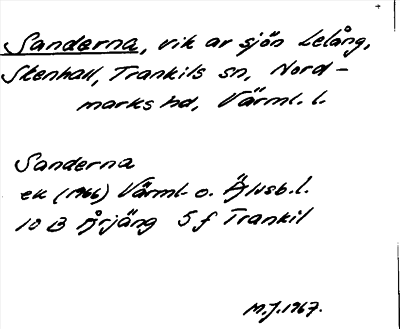 Sanderna, vik av sjön Lelång,
Stenhall, Trankils sn, Nord-
marks hd, Värml. l.
Sanderna
ek (1966) Värml. o. Älvsb. l.
10 B Årjäng 5 f Trankil
M.J. 1967.